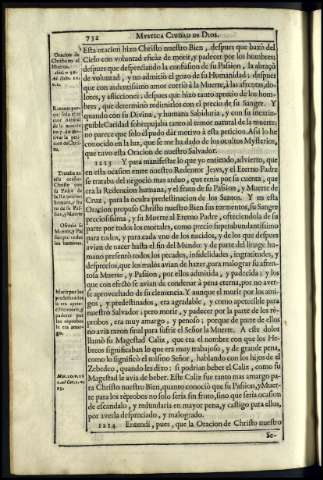 732 MYSTICA CIUDAD DE DIOS.
Esta oracion hizo Christo nuestro Bien, despues que baxò del
Cielo con voluntad eficaz de morir, y padecer por los hombres;
despues que despreciando la confusion de su Passion, la abraçò
de voluntad, y no admitiò el gozo de su Humanidad; despues
que con ardentissimo amor corriò à la Muerte, à las afrentas, do-
lores, y aflicciones; despues que hizo tanto aprecio de los hom-
bres, que determinò redimirlos con el precio de su Sangre. Y
quando con su Divina, y humana Sabiduria, y con su inextin-
guible Caridad sobrepujaba tanto al temor natural de la muerte;
no parece que solo èl pudo dàr motivo à esta peticion. Assi lo he
conocido en la luz, que se me ha dado de los ocultos Mysterios,
que tuvo esta Oracion de nuestro Salvador.
1213 Y para manifestar lo que yo entiendo, advierto, que
en esta ocasion entre nuestro Redentor JESVS, y el Eterno Padre
se trataba del negocio mas arduo, que tenia por su cuenta, que
era la Redencion humana, y el fruto de su Passion, y Muerte de
Cruz, para la oculta predestinacion de los Santos. Y en esta
Oracion propuso Christo nuestro Bien sus tormentos, su Sangre
preciosissima, y su Muerte al Eterno Padre, ofreciendola de su
parte por todos los mortales, como precio superabundantissimo
para todos, y para cada uno de los nacidos, y de los que despues
avian de nacer hasta el fin del Mundo: y de parte del linage hu-
mano presentò todos los pecados, infidelidades, ingratitudes, y
desprecios, que los malos avian de hazer, para malograr su afren-
tosa Muerte, y Passion, por ellos admitida, y padecida; y los
que con efecto se avian de condenar à pena eterna, por no aver-
se aprovechado de su clemencia. Y aunque el morir por los ami-
gos, y predestinados, era agradable, y como apetecible para
nuestro Salvador; pero morir, y padecer por la parte de los rè-
probos, era muy amargo, y penoso; porque de parte de ellos
no avia razon final para sufrir el Señor la Muerte. A este dolor
llamò su Magestad Caliz, que era el nombre con que los He-
breos significaban lo que era muy trabajoso, y de grande pena,
como lo significò el mismo Señor, hablando con los hijos de el
Zebedeo, quando les dixo: si podrian beber el Caliz, como su
Magestad le avia de beber. Este Caliz fue tanto mas amargo pa-
ra Christo nuestro Bien, quanto conociò que su Passion, y Muer-
te para los rèprobos no solo seria sin fruto, sino que seria ocasion
de escandalo, y redundaria en mayor pena, y castigo para ellos,
por averla despreciado, y malogrado.
1214 Entendì, pues, que la Oracion de Christo nuestro
Se-